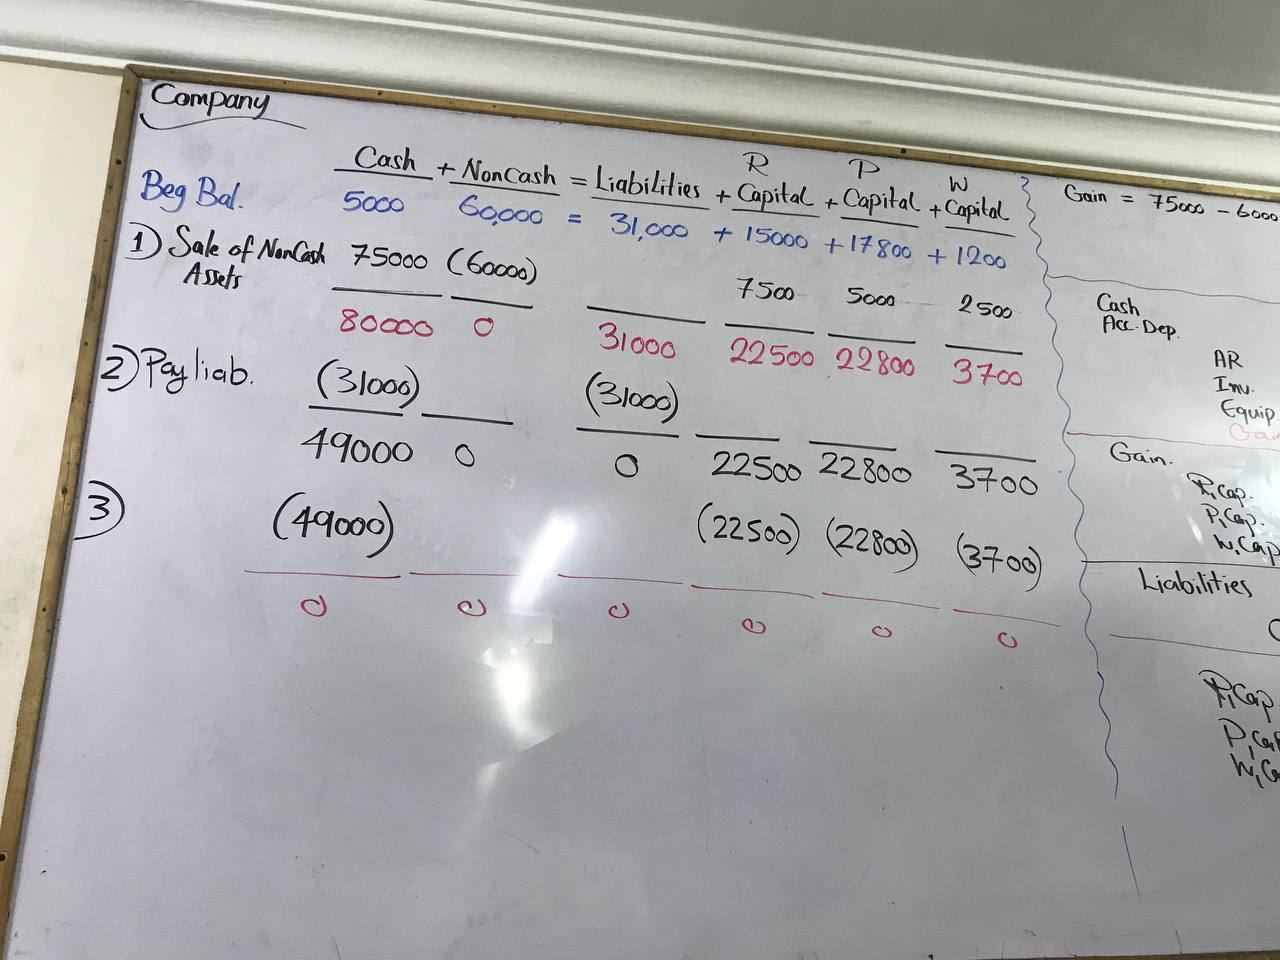 Company
R P W
Cash + NonCash = Liabilities + Capital + Capital + Capital
Beg Bal. 5000 60,000 = 31,000 + 15000 + 17800 + 1200
1) Sale of NonCash Assets 75000 (60000) 7500 5000 2500
80000 0 31000 22500 22800 3700
2) Pay liab. (31000) (31000)
49000 0 0 22500 22800 3700
3) (49000) (22500) (22800) (3700)
0 0 0 0 0 0
Gain = 75000 - 6000
Cash
Acc. Dep.
AR
Inv.
Equip.
Gain.
R, Cap.
P, Cap.
W, Cap
Liabilities
R, Cap.
P, Cap
W, Ca